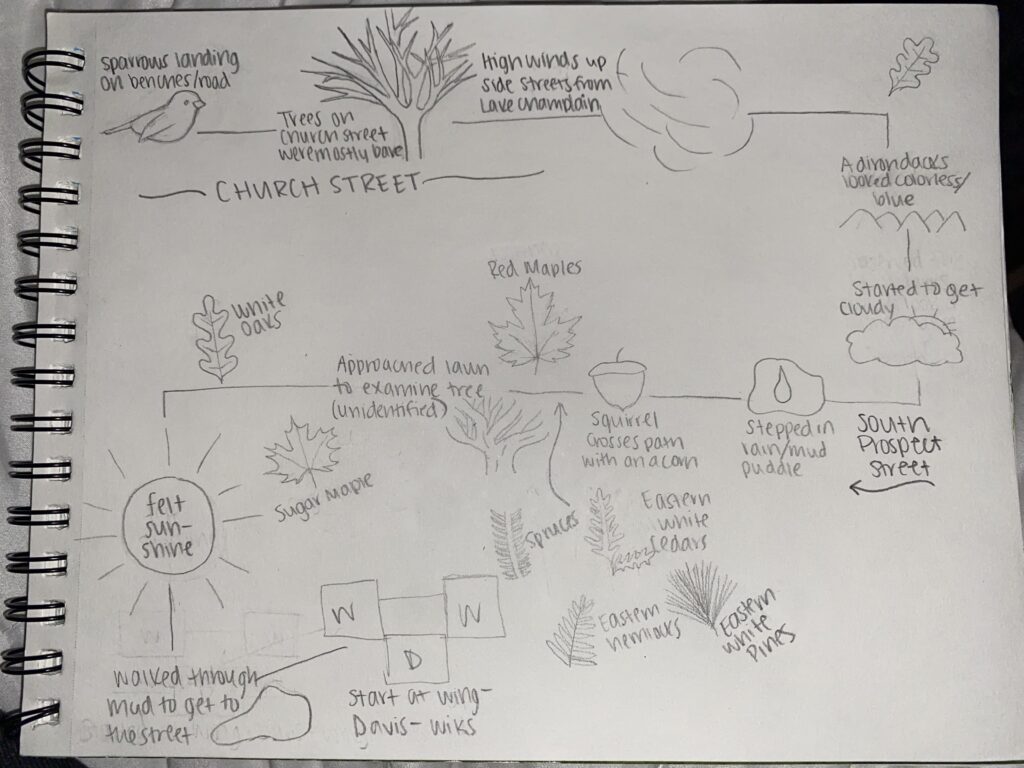 sparrows landing
on benches/road
Trees on
church street
were mostly bare
High winds up
side streets from
Lake Champlain
CHURCH STREET
Adirondacks
looked colorless/
blue
Started to get
cloudy
South
Prospect
Street
Stepped in
rain/mud
puddle
Squirrel
crosses path
with an acorn
Red Maples
Approached lawn
to examine tree
(unidentified)
White
oaks
Sugar Maple
Spruces
Eastern
white
cedars
Eastern
hemlocks
Eastern
white
Pines
felt
sun-
shine
walked through
mud to get to
the street
W
W
D
Start at wing-
Davis-wiks